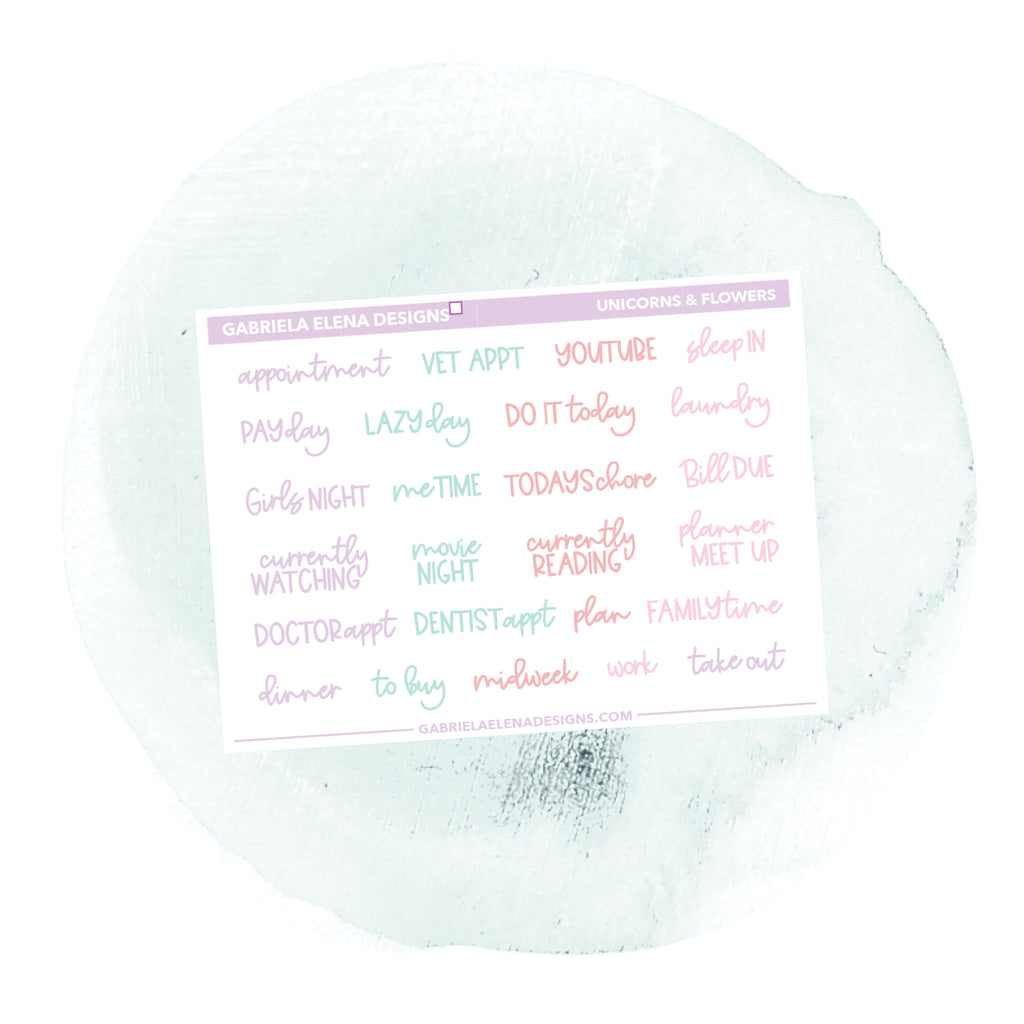 GABRIELA ELENA DESIGNS UNICORNS & FLOWERS
appointment VET APPT YOUTUBE sleep IN
PAY day LAZY day DO IT today laundry
Girls NIGHT me TIME TODAYS chore Bill DUE
currently WATCHING
movie NIGHT
currently READING
planner MEET UP
DOCTOR appt DENTIST appt plan FAMILY time
dinner to buy midweek work take out
GABRIELAELENADESIGNS.COM